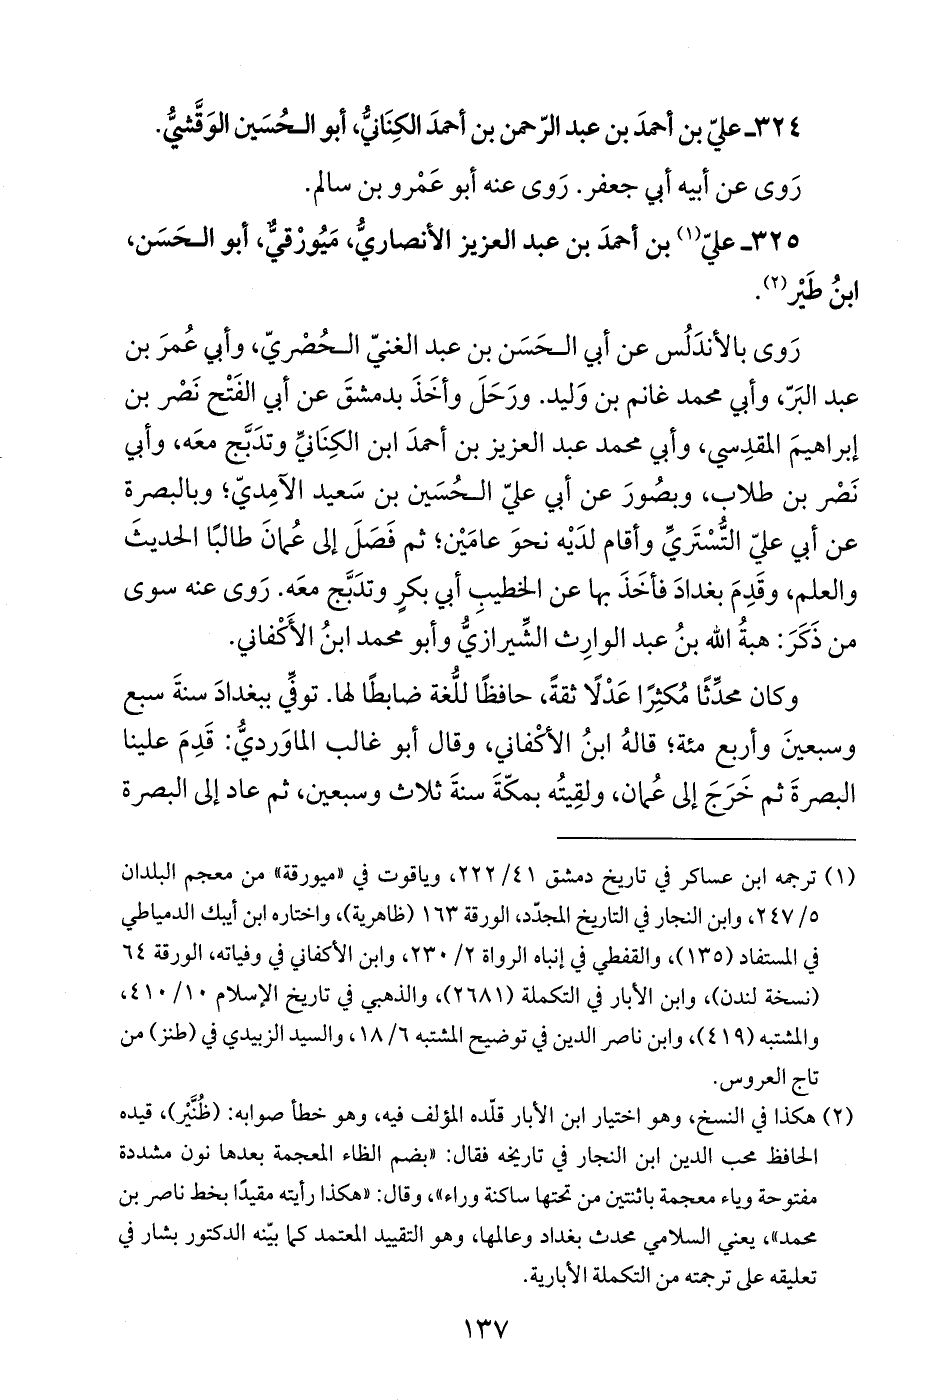 ٣٢٤ـ عليّ بن أحمدَ بن عبد الرّحمن بن أحمدَ الكِنَانيُّ، أبو الـحُسَين الوَقَّشيُّ.
رَوى عن أبيه أبي جعفر. رَوى عنه أبو عَمْرو بن سالم.
٣٢٥ـ عليّ(١) بن أحمدَ بن عبد العزيز الأنصاريُّ، مَيُورْقيٌّ، أبو الـحَسَن،
ابنُ طَيْر(٢).
رَوى بالأندَلُس عن أبي الـحَسَن بن عبد الغنيّ الـحُصْريّ، وأبي عُمرَ بن
عبد البَرّ، وأبي محمد غانم بن وَليد. ورَحَلَ وأخَذَ بدمشقَ عن أبي الفَتْح نَصْر بن
إبراهيمَ المقدِسي، وأبي محمد عبد العزيز بن أحمدَ ابن الكِنَانيِّ وتدَبَّج معَه، وأبي
نَصْر بن طلاب، وبصُورَ عن أبي عليّ الـحُسَين بن سَعيد الآمِديّ؛ وبالبصرة
عن أبي عليّ التُّسْتَريِّ وأقام لدَيْه نحوَ عامَيْن؛ ثم فَصَلَ إلى عُمانَ طالبًا الحديثَ
والعلم، وقَدِمَ بغدادَ فأخَذَ بها عن الخطيبِ أبي بكرٍ وتدَبَّج معَه. رَوى عنه سوى
من ذَكَرَ: هبةُ الله بنُ عبد الوارِث الشِّيرازيُّ وأبو محمد ابنُ الأَكْفاني.
وكان محدِّثًا مُكثِرًا عَدْلًا ثقةً، حافظًا للُّغة ضابطًا لها. توفِّي ببغدادَ سنةَ سبع
وسبعينَ وأربع مئة؛ قالهُ ابنُ الأكْفاني، وقال أبو غالب الماوَرديُّ: قَدِمَ علينا
البصرةَ ثم خَرَجَ إلى عُمان، ولقِيتُه بمكّةَ سنةَ ثلاث وسبعين، ثم عاد إلى البصرة
(١) ترجمه ابن عساكر في تاريخ دمشق ٤١/ ٢٢٢، وياقوت في «ميورقة» من معجم البلدان
٥/ ٢٤٧، وابن النجار في التاريخ المجدّد، الورقة ١٦٣ (ظاهرية)، واختاره ابن أيبك الدمياطي
في المستفاد (١٣٥)، والقفطي في إنباه الرواة ٢/ ٢٣٠، وابن الأكفاني في وفياته، الورقة ٦٤
(نسخة لندن)، وابن الأبار في التكملة (٢٦٨١)، والذهبي في تاريخ الإسلام ١٠/ ٤١٠،
والمشتبه (٤١٩)، وابن ناصر الدين في توضيح المشتبه ٦/ ١٨، والسيد الزبيدي في (طنز) من
تاج العروس.
(٢) هكذا في النسخ، وهو اختيار ابن الأبار قلّده المؤلف فيه، وهو خطأ صوابه: (ظُنَّيْر)، قيده
الحافظ محب الدين ابن النجار في تاريخه فقال: «بضم الظاء المعجمة بعدها نون مشددة
مفتوحة وياء معجمة باثنتين من تحتها ساكنة وراء»، وقال: «هكذا رأيته مقيدًا بخط ناصر بن
محمد»، يعني السلامي محدث بغداد وعالمها، وهو التقييد المعتمد كما بيّنه الدكتور بشار في
تعليقه على ترجمته من التكملة الأبارية.
١٣٧